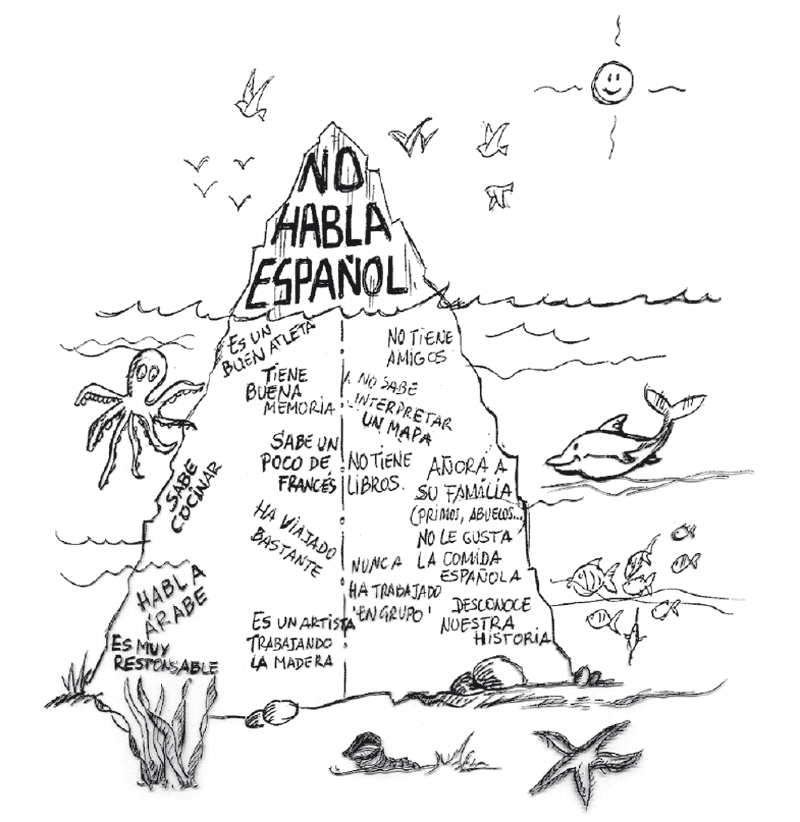 NO
HABLA
ESPAÑOL
ES UN
BUEN ATLETA
TIENE
BUENA
MEMORIA
SABE UN
POCO DE
FRANCÉS
SABE
COCINAR
HA VIAJADO
BASTANTE
HABLA
ÁRABE
ES MUY
RESPONSABLE
ES UN ARTISTA
TRABAJANDO
LA MADERA
NO TIENE
AMIGOS
NO SABE
INTERPRETAR
UN MAPA
NO TIENE
LIBROS.
AÑORA A
SU FAMILIA
(PRIMOS, ABUELOS...)
NO LE GUSTA
LA COMIDA
ESPAÑOLA
NUNCA
HA TRABAJADO
'EN GRUPO'
DESCONOCE
NUESTRA
HISTORIA